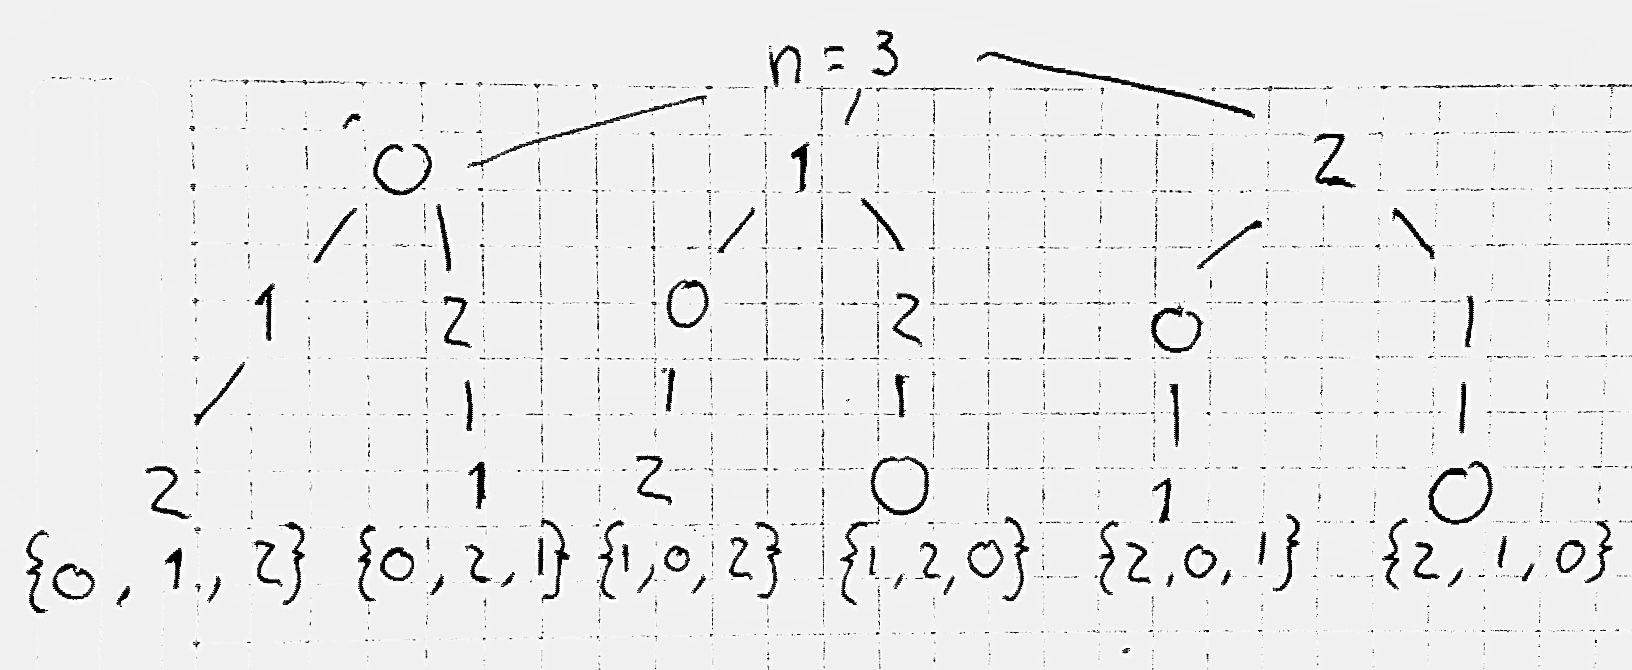 n = 3
0 1 2
1 2 0 2 0 1
2 1 2 0 1 0
{0, 1, 2} {0, 2, 1} {1, 0, 2} {1, 2, 0} {2, 0, 1} {2, 1, 0}